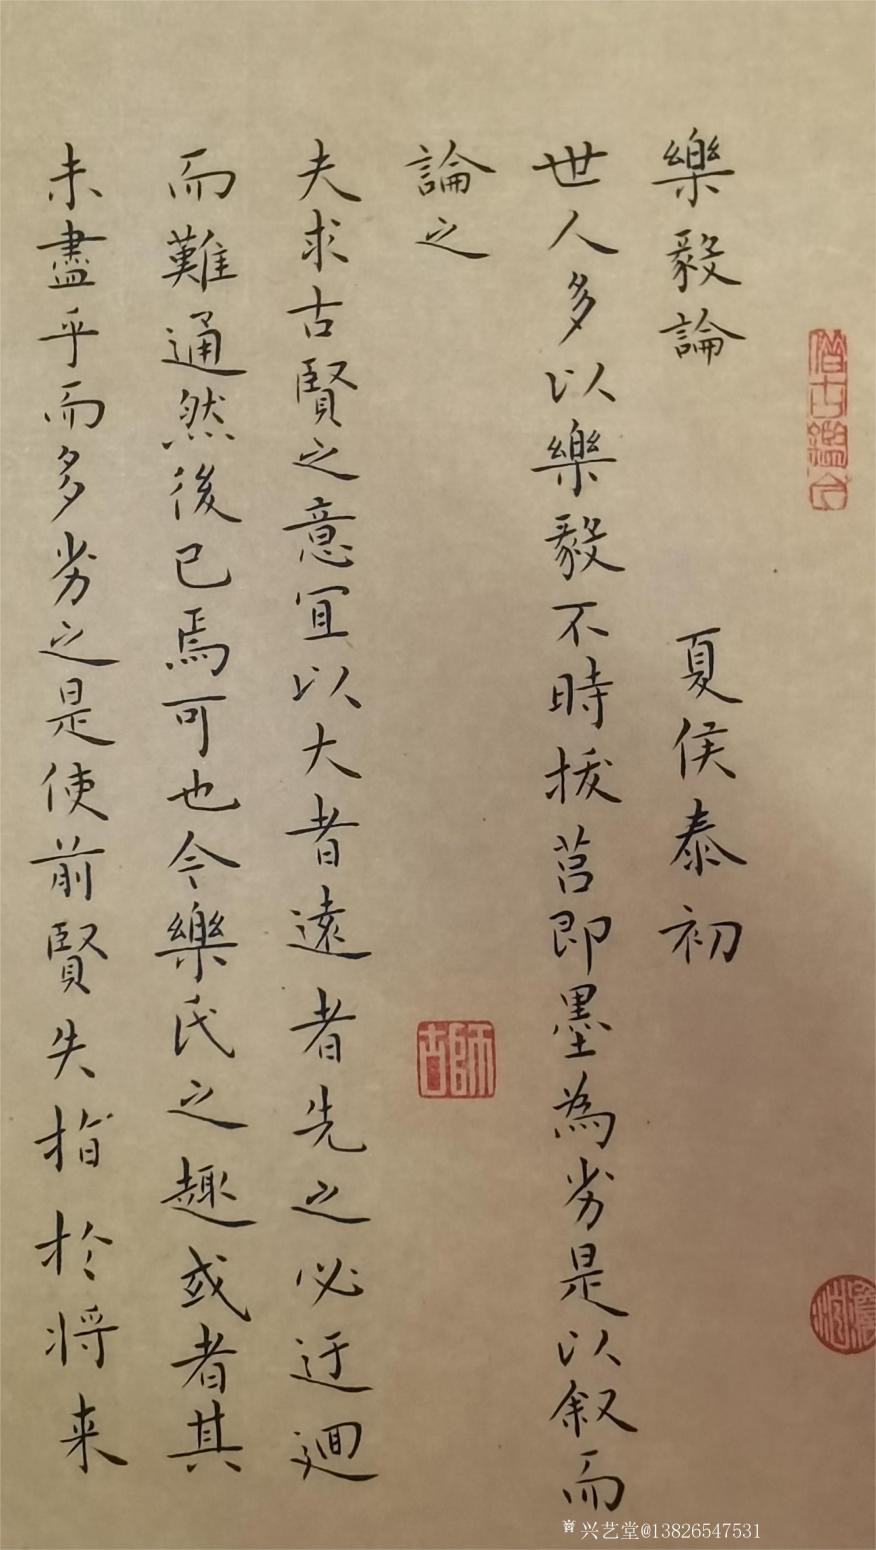 樂毅論 夏侯泰初
世人多以樂毅不時拔莒即墨為劣是以叙而
論之
夫求古賢之意宜以大者遠者先之必迂迴
而難通然後已焉可也今樂氏之趣或者其
未盡乎而多劣之是使前賢失指於將来
師古
兴艺堂@13826547531